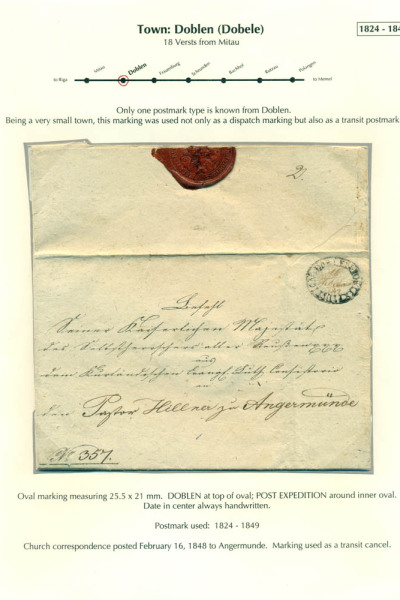 Town: Doblen (Dobele)
1824 - 184
18 Versts from Mitau
to Riga
Mitau
Doblen
Frauenburg
Schrunden
Bachhof
Rutzau
Polangen
to Memel
Only one postmark type is known from Doblen.
Being a very small town, this marking was used not only as a dispatch marking but also as a transit postmark
2.
Befehl
Seiner Kaiserlichen Majestät
des Selbstherrschers aller Reußen
aus
dem Kurländischen Evangl. Luth. Consistorio
an
den Pastor Hillner zu Angermünde
№ 357.
Oval marking measuring 25.5 x 21 mm. DOBLEN at top of oval; POST EXPEDITION around inner oval.
Date in center always handwritten.
Postmark used: 1824 - 1849
Church correspondence posted February 16, 1848 to Angermunde. Marking used as a transit cancel.